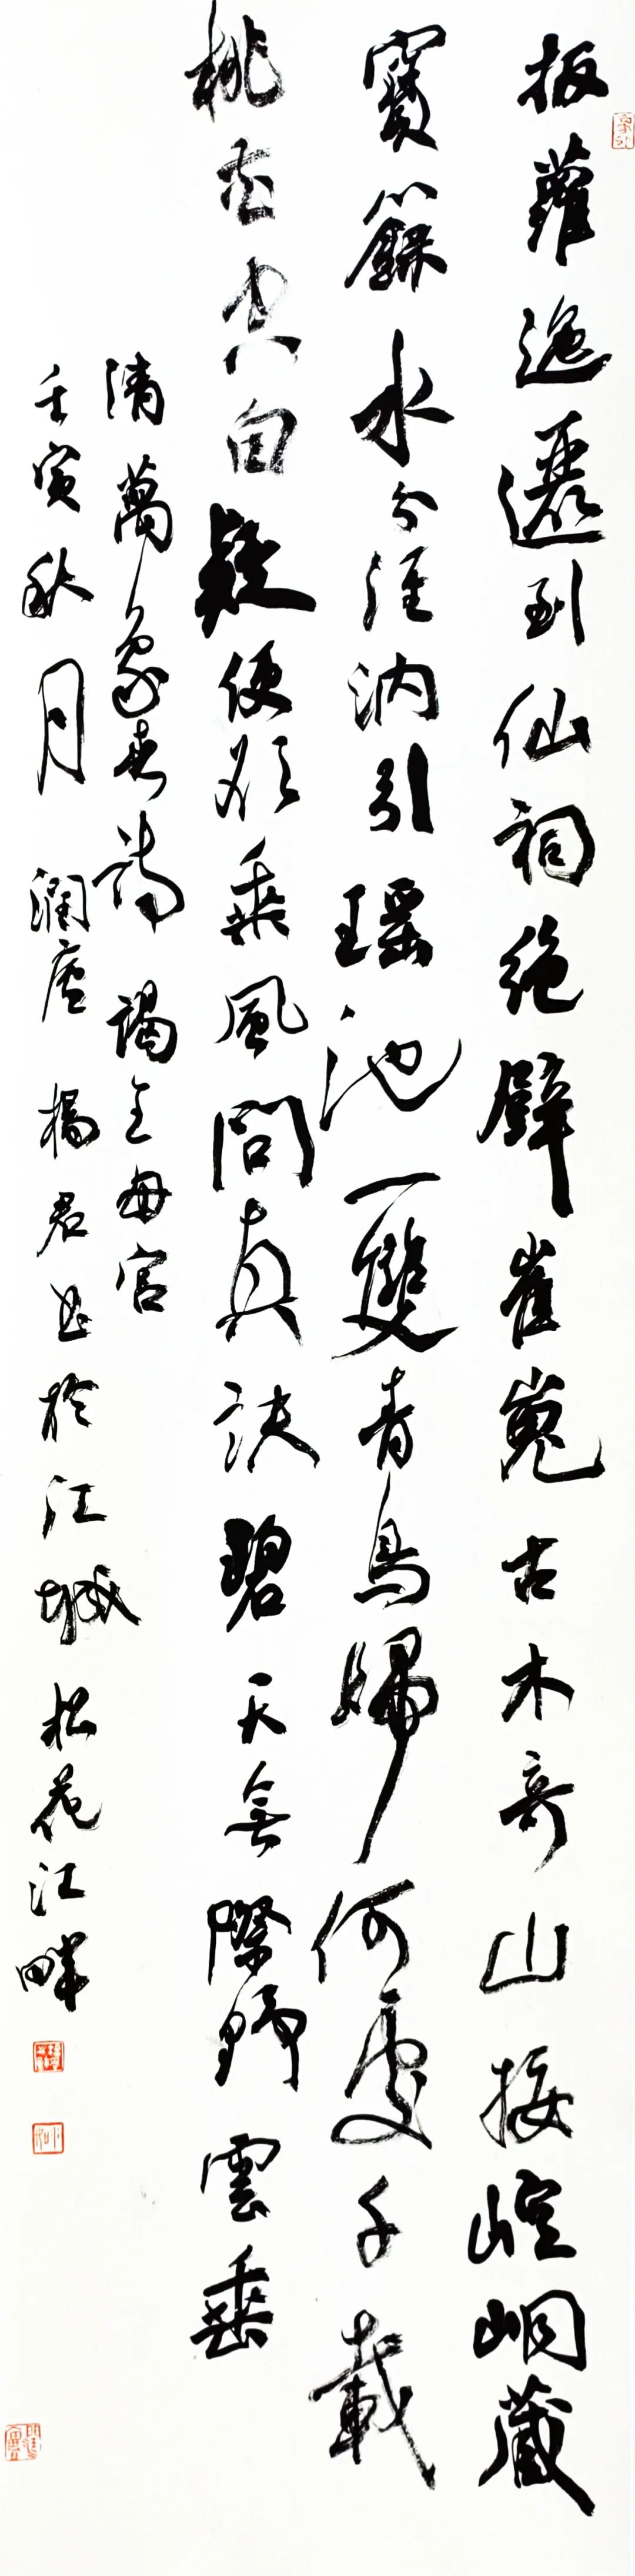 扳蘿迤邐到仙祠絶壁崔嵬古木奇山接崆峒藏
寶籙水分涇汭引瑶池一雙青鳥歸何處千載
桃花空自疑便欲乘風問真訣碧天無際野雲垂
清萬象春詩 謁王母宫
壬寅秋月 潤廬 楊君書於江城松花江畔